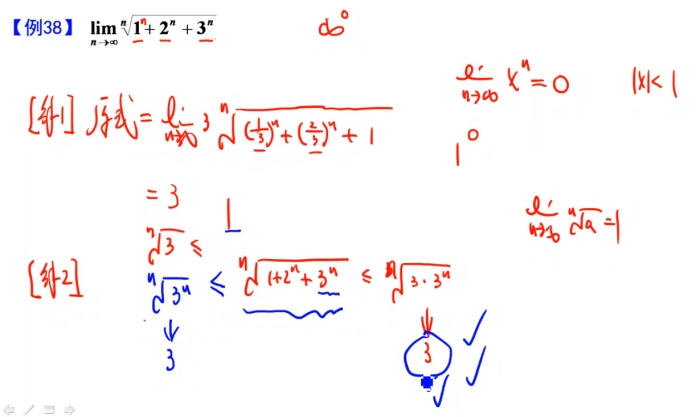 【例38】 lim_{n→∞} ⁿ√(1ⁿ + 2ⁿ + 3ⁿ) ∞⁰
lim_{n→∞} xⁿ = 0 |x| < 1
[解1] 原式 = lim_{n→∞} 3 ⁿ√((1/3)ⁿ + (2/3)ⁿ + 1) 1⁰
= 3 1
lim_{n→∞} ⁿ√a = 1
ⁿ√3 ≤
[解2] ⁿ√(3ⁿ) ≤ ⁿ√(1+2ⁿ+3ⁿ) ≤ ⁿ√(3·3ⁿ)
↓ ↓
3 3 ✓ ✓ ✓